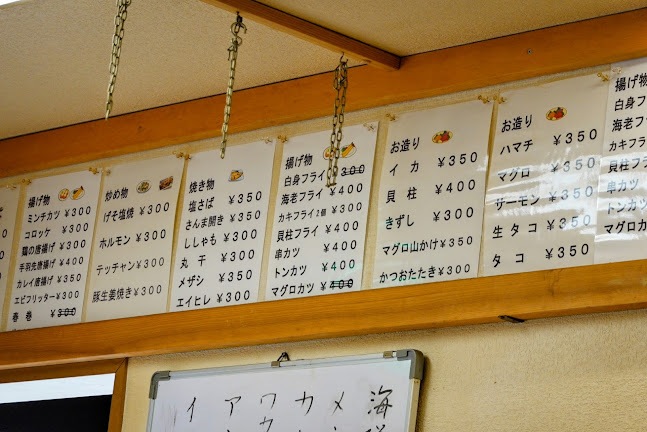 揚げ物
ミンチカツ ¥300
コロッケ ¥300
鶏の唐揚げ ¥300
手羽先唐揚げ ¥400
カレイ唐揚げ ¥300
エビフリッター ¥300
春巻 ¥300
炒め物
げそ塩焼 ¥300
ホルモン ¥300
テッチャン ¥300
豚生姜焼き ¥300
焼き物
塩さば ¥350
さんま開き ¥350
ししゃも ¥300
丸干 ¥300
メザシ ¥350
エイヒレ ¥300
揚げ物
白身フライ ¥300
海老フライ ¥400
カキフライ2個 ¥300
貝柱フライ ¥400
串カツ ¥400
トンカツ ¥400
マグロカツ ¥400
お造り
イカ ¥350
貝柱 ¥400
きずし ¥300
マグロ山かけ ¥350
かつおたたき ¥300
お造り
ハマチ ¥350
マグロ ¥350
サーモン ¥350
生タコ ¥350
タコ ¥350
揚げ物
白身フライ
海老フライ
カキフライ
貝柱フライ
串カツ
トンカツ
マグロカツ
海
メ
カ
ワカ
ア
イ